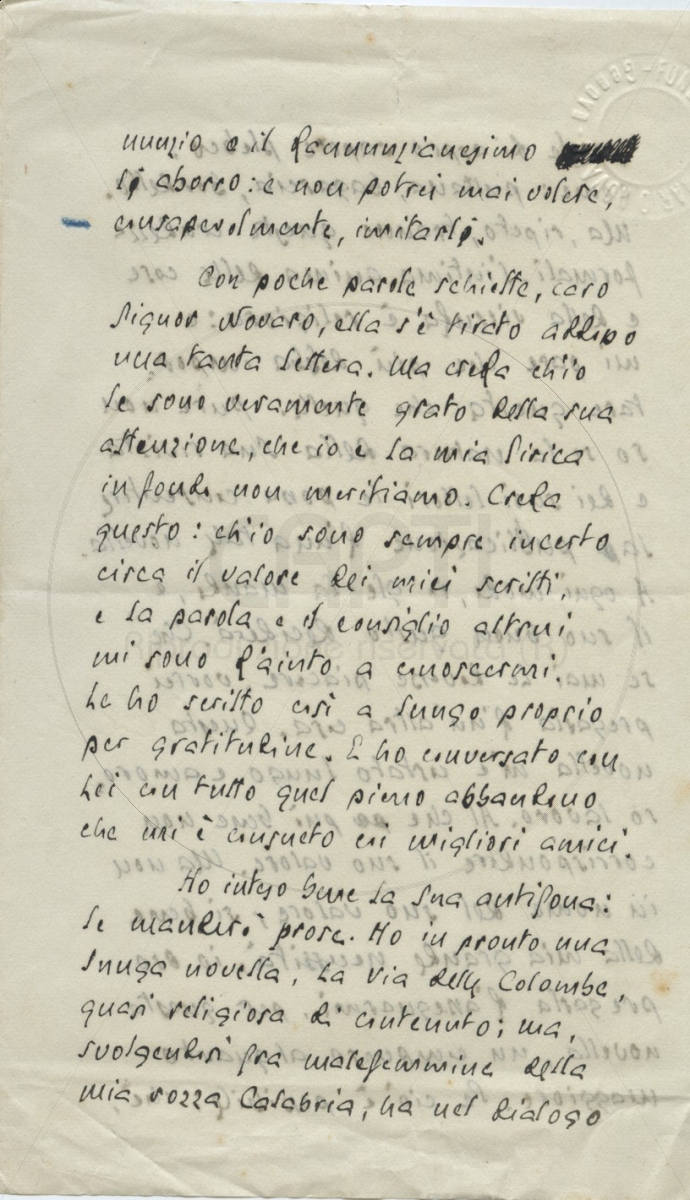 nunzio e il dannunzianesimo
li aborro: e non potrei mai volere,
consapevolmente, imitarli.
Con poche parole schiette, caro
Signor Novaro, ella s'è tirato addosso
una tanta lettera. Ma creda ch'io
le sono veramente grato della sua
attenzione, che io e la mia lirica
in fondo non meritiamo. Creda
questo: ch'io sono sempre incerto
circa il valore dei miei scritti,
e la parola e il consiglio altrui
mi sono d'aiuto a conoscermi.
Le ho scritto così a lungo proprio
per gratitudine. E ho conversato con
Lei con tutto quel pieno abbandono
che mi è consueto coi migliori amici.
Ho inteso bene la sua antifona:
le manderò prose. Ho in pronto una
lunga novella, La Via delle Colombe,
quasi religiosa di contenuto; ma,
svolgendosi fra malefemmine della
mia rozza Calabria, ha nel dialogo